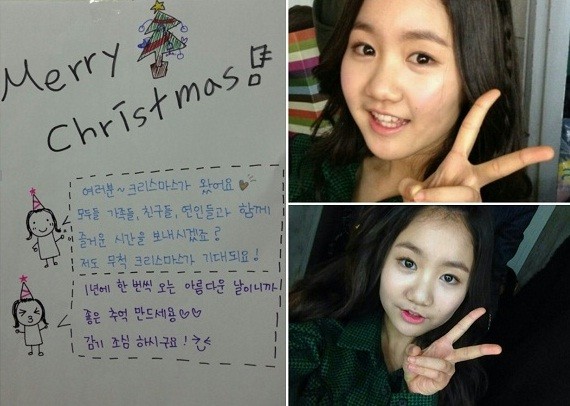 Merry
Christmas!
여러분~ 크리스마스가 왔어요
모두들 가족들, 친구들, 연인들과 함께
즐거운 시간을 보내시겠죠?
저도 무척 크리스마스가 기대되요!
1년에 한 번씩 오는 아름다운 날이니까
좋은 추억 만드세용♡♡
감기 조심 하시구요!